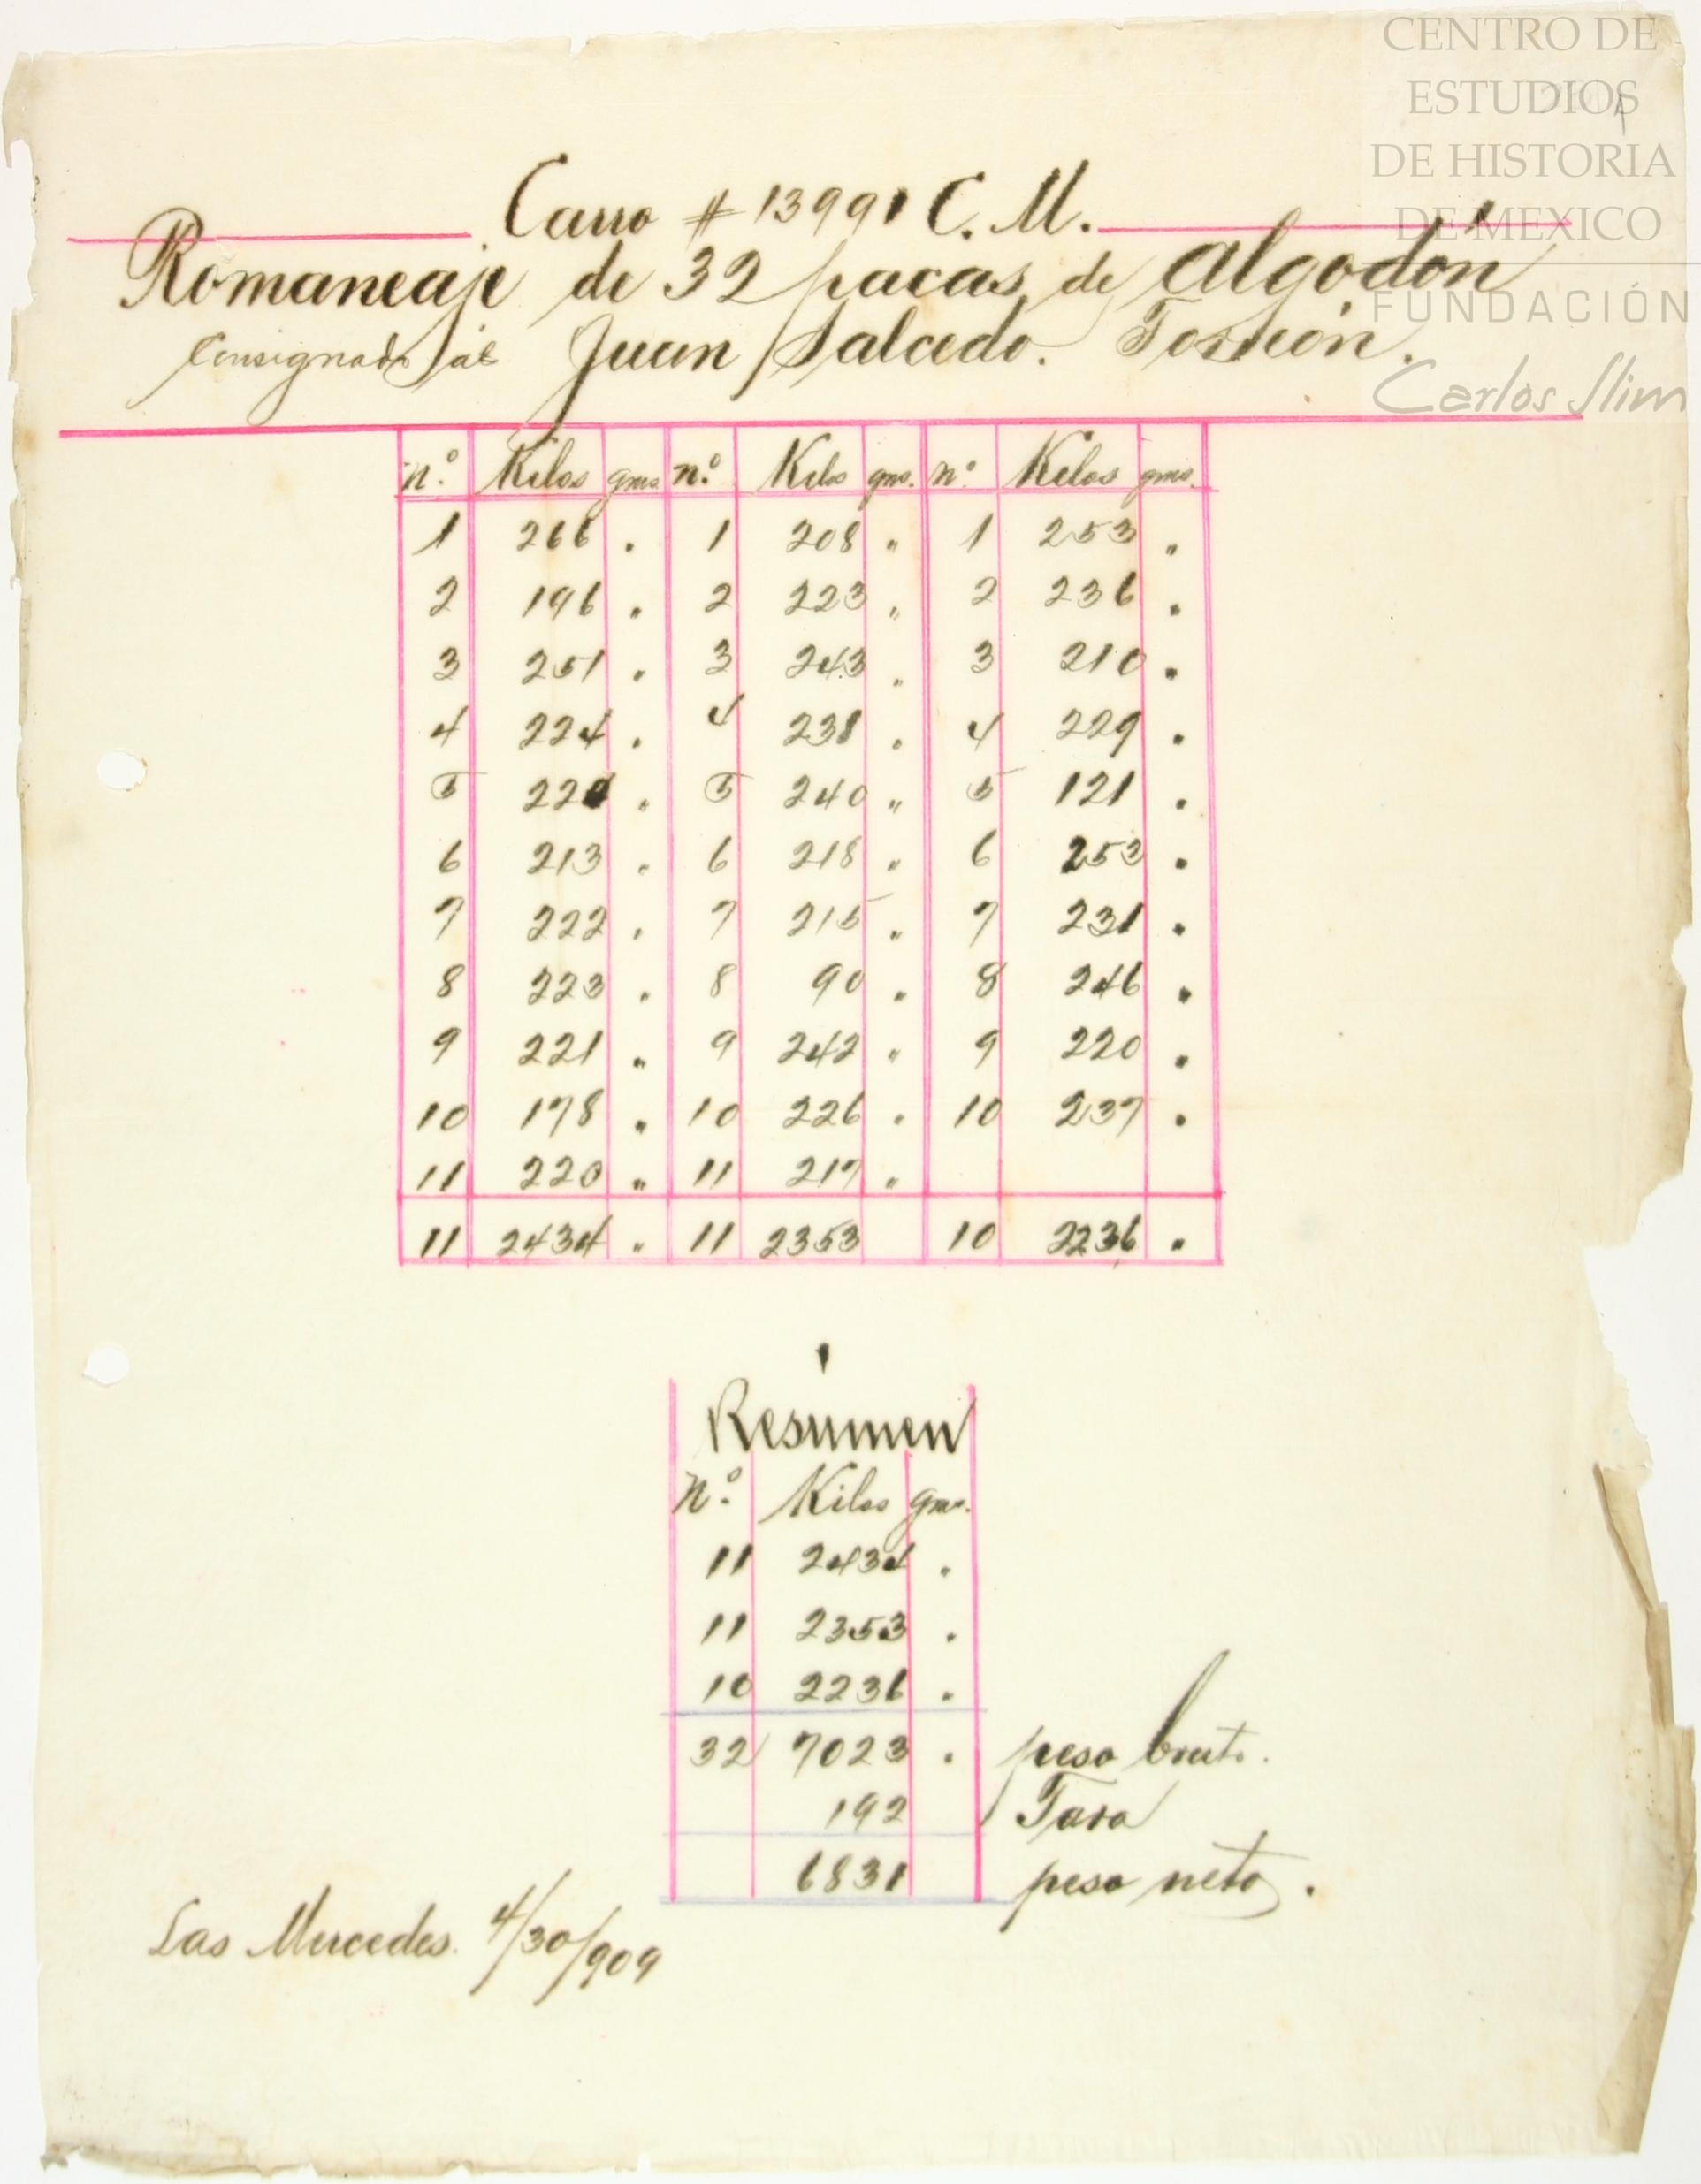 CENTRO DE
ESTUDIOS
DE HISTORIA
DE MEXICO
FUNDACIÓN
Carlos Slim
Carro # 13991 C. M.
Romaneaje de 32 pacas de Algodón
Consignado al Juan Salcedo. Torreón.
n.º Kilos gms n.º Kilos gms. nº Kilos gms.
1 266 " 1 208 " 1 253 "
2 196 " 2 223 " 2 236 "
3 251 " 3 243 " 3 210 "
4 224 " 4 231 " 4 229 "
5 220 " 5 240 " 5 121 "
6 213 " 6 218 " 6 253 "
7 222 " 7 215 " 7 231 "
8 223 " 8 90 " 8 246 "
9 221 " 9 242 " 9 220 "
10 178 " 10 226 " 10 237 "
11 220 " 11 217 "
11 2434 " 11 2353 10 2236 "
Resumen
Nº. Kilos gms.
11 2434 "
11 2353 "
10 2236 "
32 7023 " peso bruto.
192 Tara
6831 peso neto.
Las Mercedes. 4/30/909